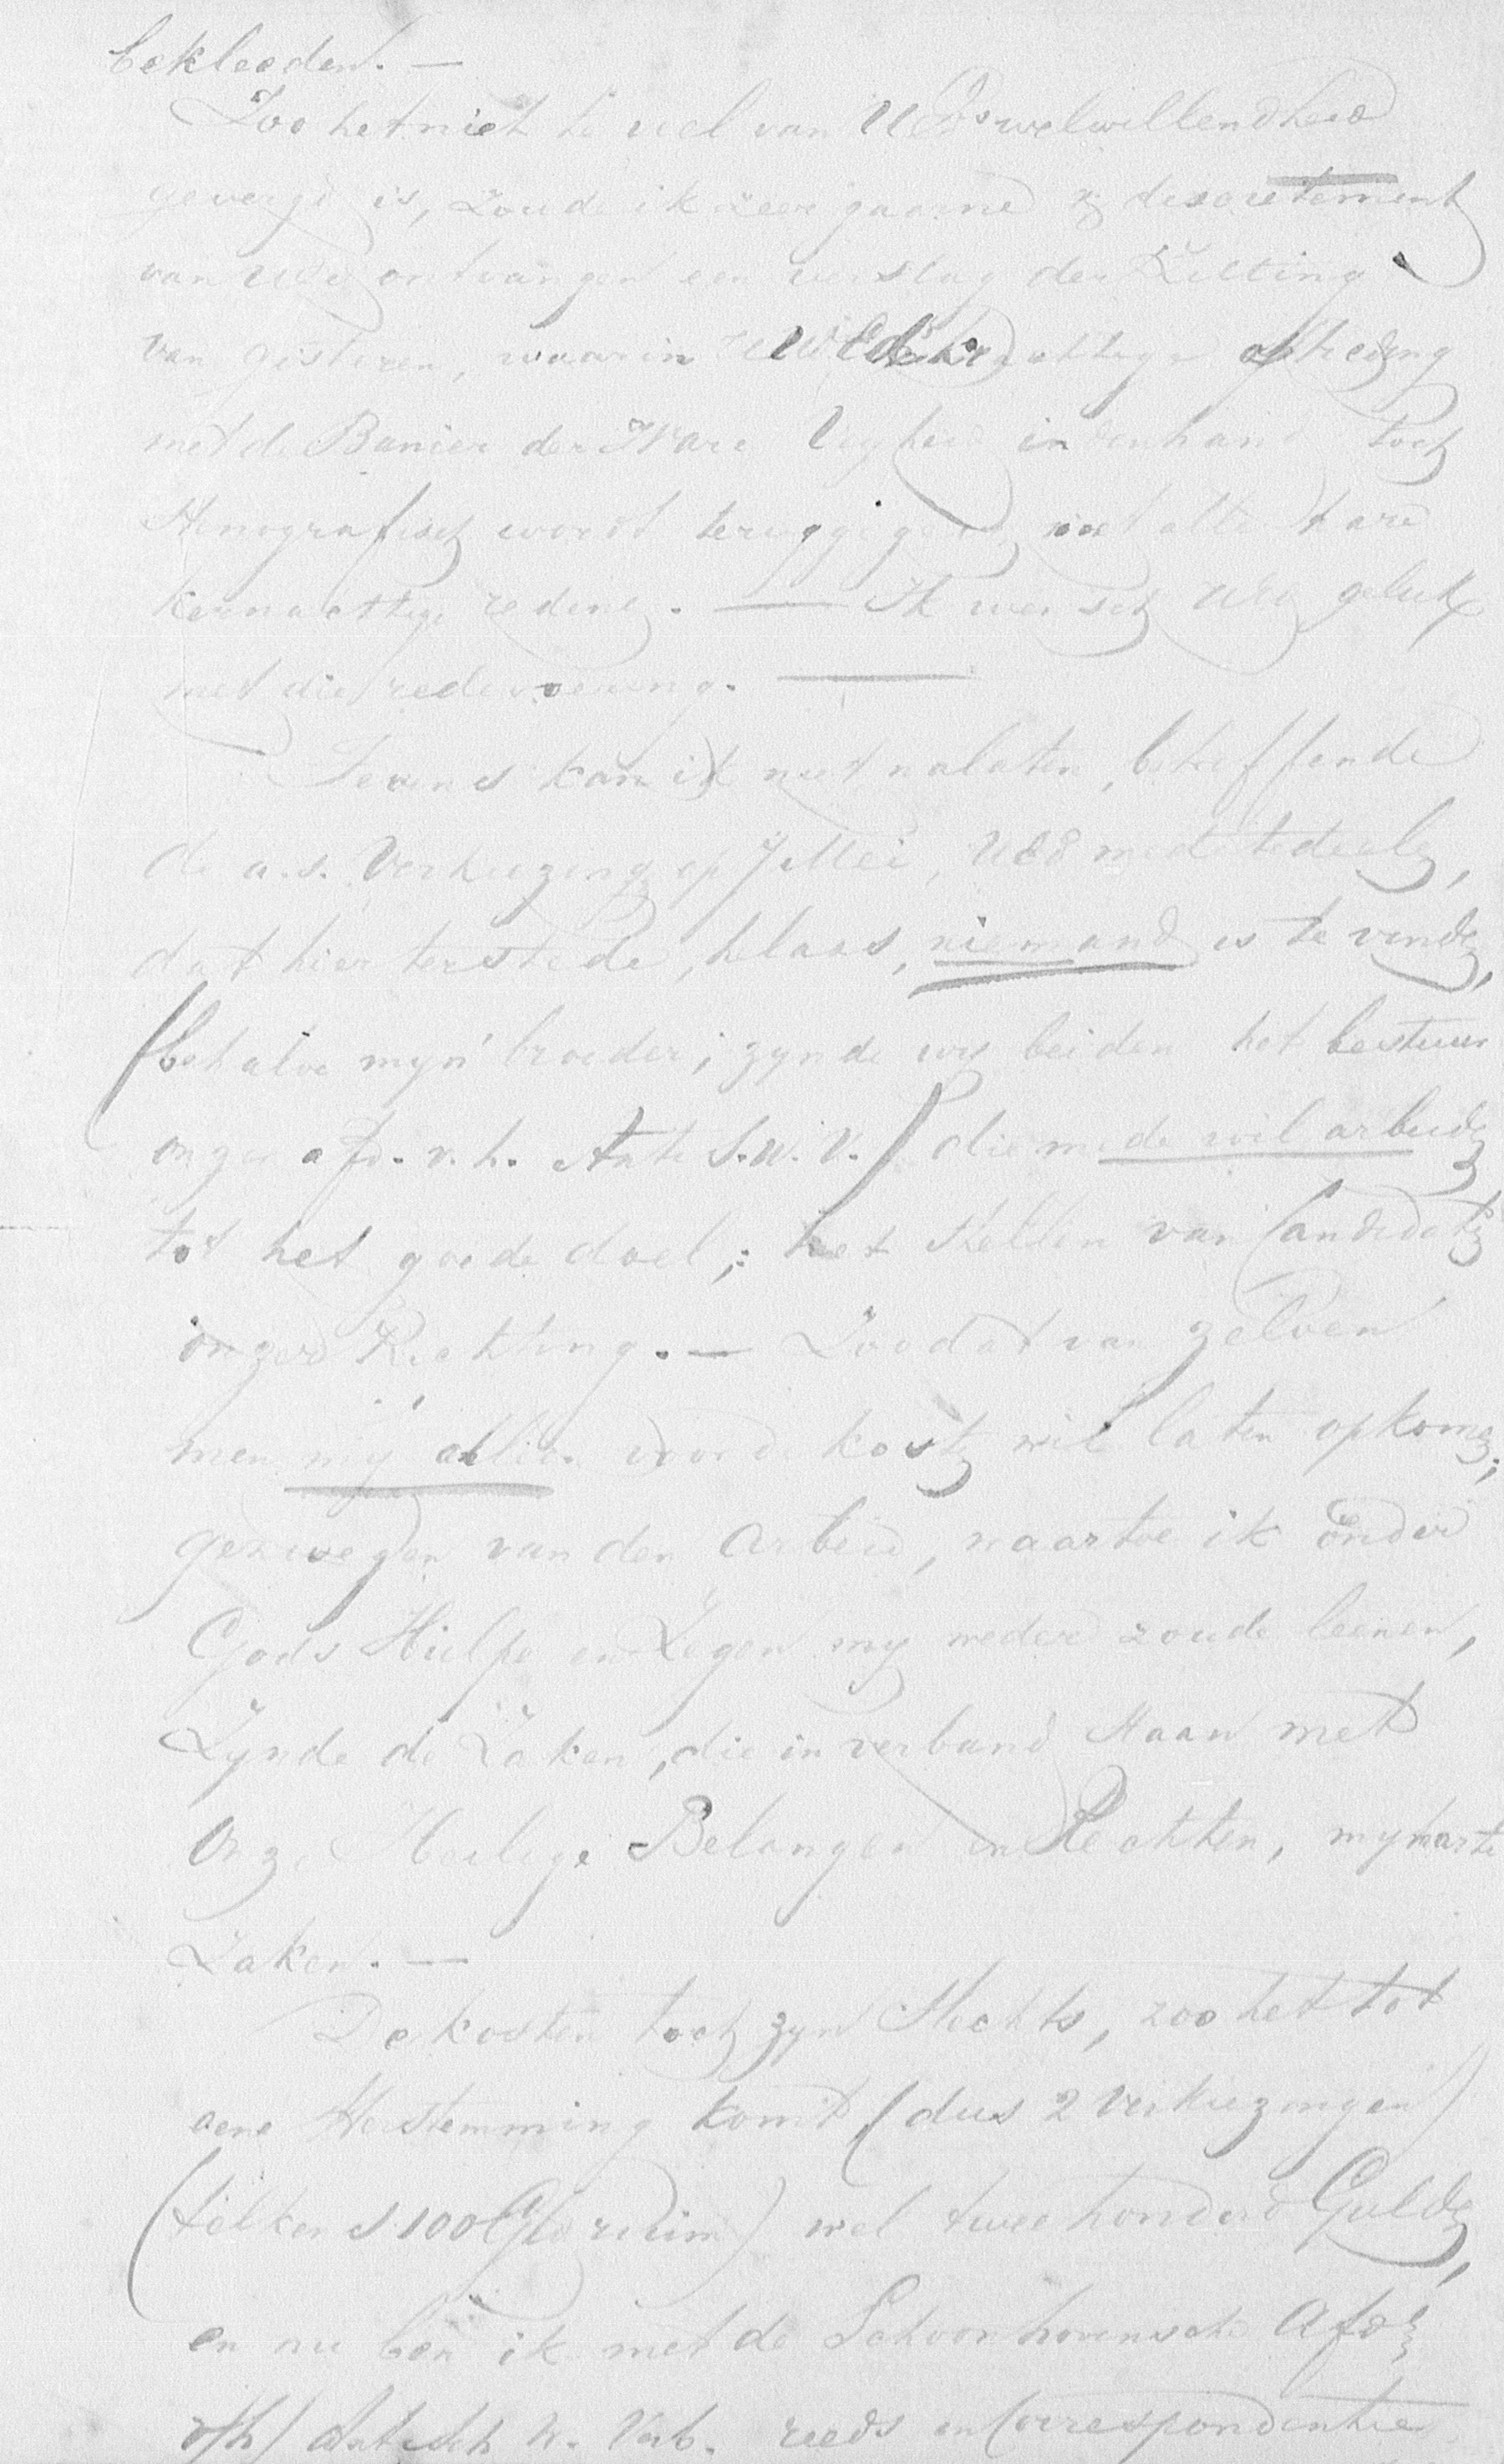 bekleeden. —
Zoo het niet te veel van UEds welwillendheid
gevergd is, zoude ik zeer gaarne discretement
van UEd ontvangen een verslag der Zitting
van gisteren, waarin optreding
met de Banier der Ware in den hand toch
stenografisch wordt teruggegeven met
kernachtige redene. — Ik wensch UEd geluk
met die redevoering. —
Tevens kan ik niet nalaten, betreffende
de a.s. Verkiezing op 7 Mei, UEd mede te deelen,
dat hier ter stede, helaas, niemand is te vinden,
(behalve mijn broeder; zynde wy beiden het bestuur
onzer afd. v. h. Anti S. W. V.) die mede wil arbeiden
tot het goede doel; het stellen van Candidaten
onzer Richting. — Zoodat van zelven
men mij alleen voor de kosten wil laten opkomen;
gezwegen van den Arbeid, waartoe ik onder
Gods Hulpe en Zegen my weder zoude leenen,
Zynde de Zaken, die in verband staan met
Onze Heilige Belangen en Rechten, myn harte
Zaken. —
De kosten toch zyn slechts, zoo het tot
eene Herstemming komt (dus 2 Verkiezingen)
(telkens 100 Gld ruim) wel twee honderd Gulden,
en nu ben ik met de Schoonhovensche Afd
v/h/ Antisch W. Verb. reeds en Correspondentie